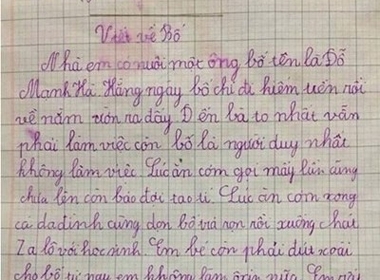 Viết về Bố
Nhà em có nuôi một ông bố tên là Đỗ
Mạnh Hà. Hằng ngày bố chỉ đi kiếm tiền rồi
về nằm ườn ra đấy. Đến bà to nhất vẫn
phải làm việc còn bố là người duy nhất
không làm việc. Lúc ăn cơm gọi mấy lần cũng
chưa lên còn bảo đợi tao tí. Lúc ăn cơm xong
cả da đình cùng dọn bố và rọn rồi xuống chát
Za lô với học sinh. Em bé còn phải đút xoài
cho bố từ nay em không làm nữa. Em